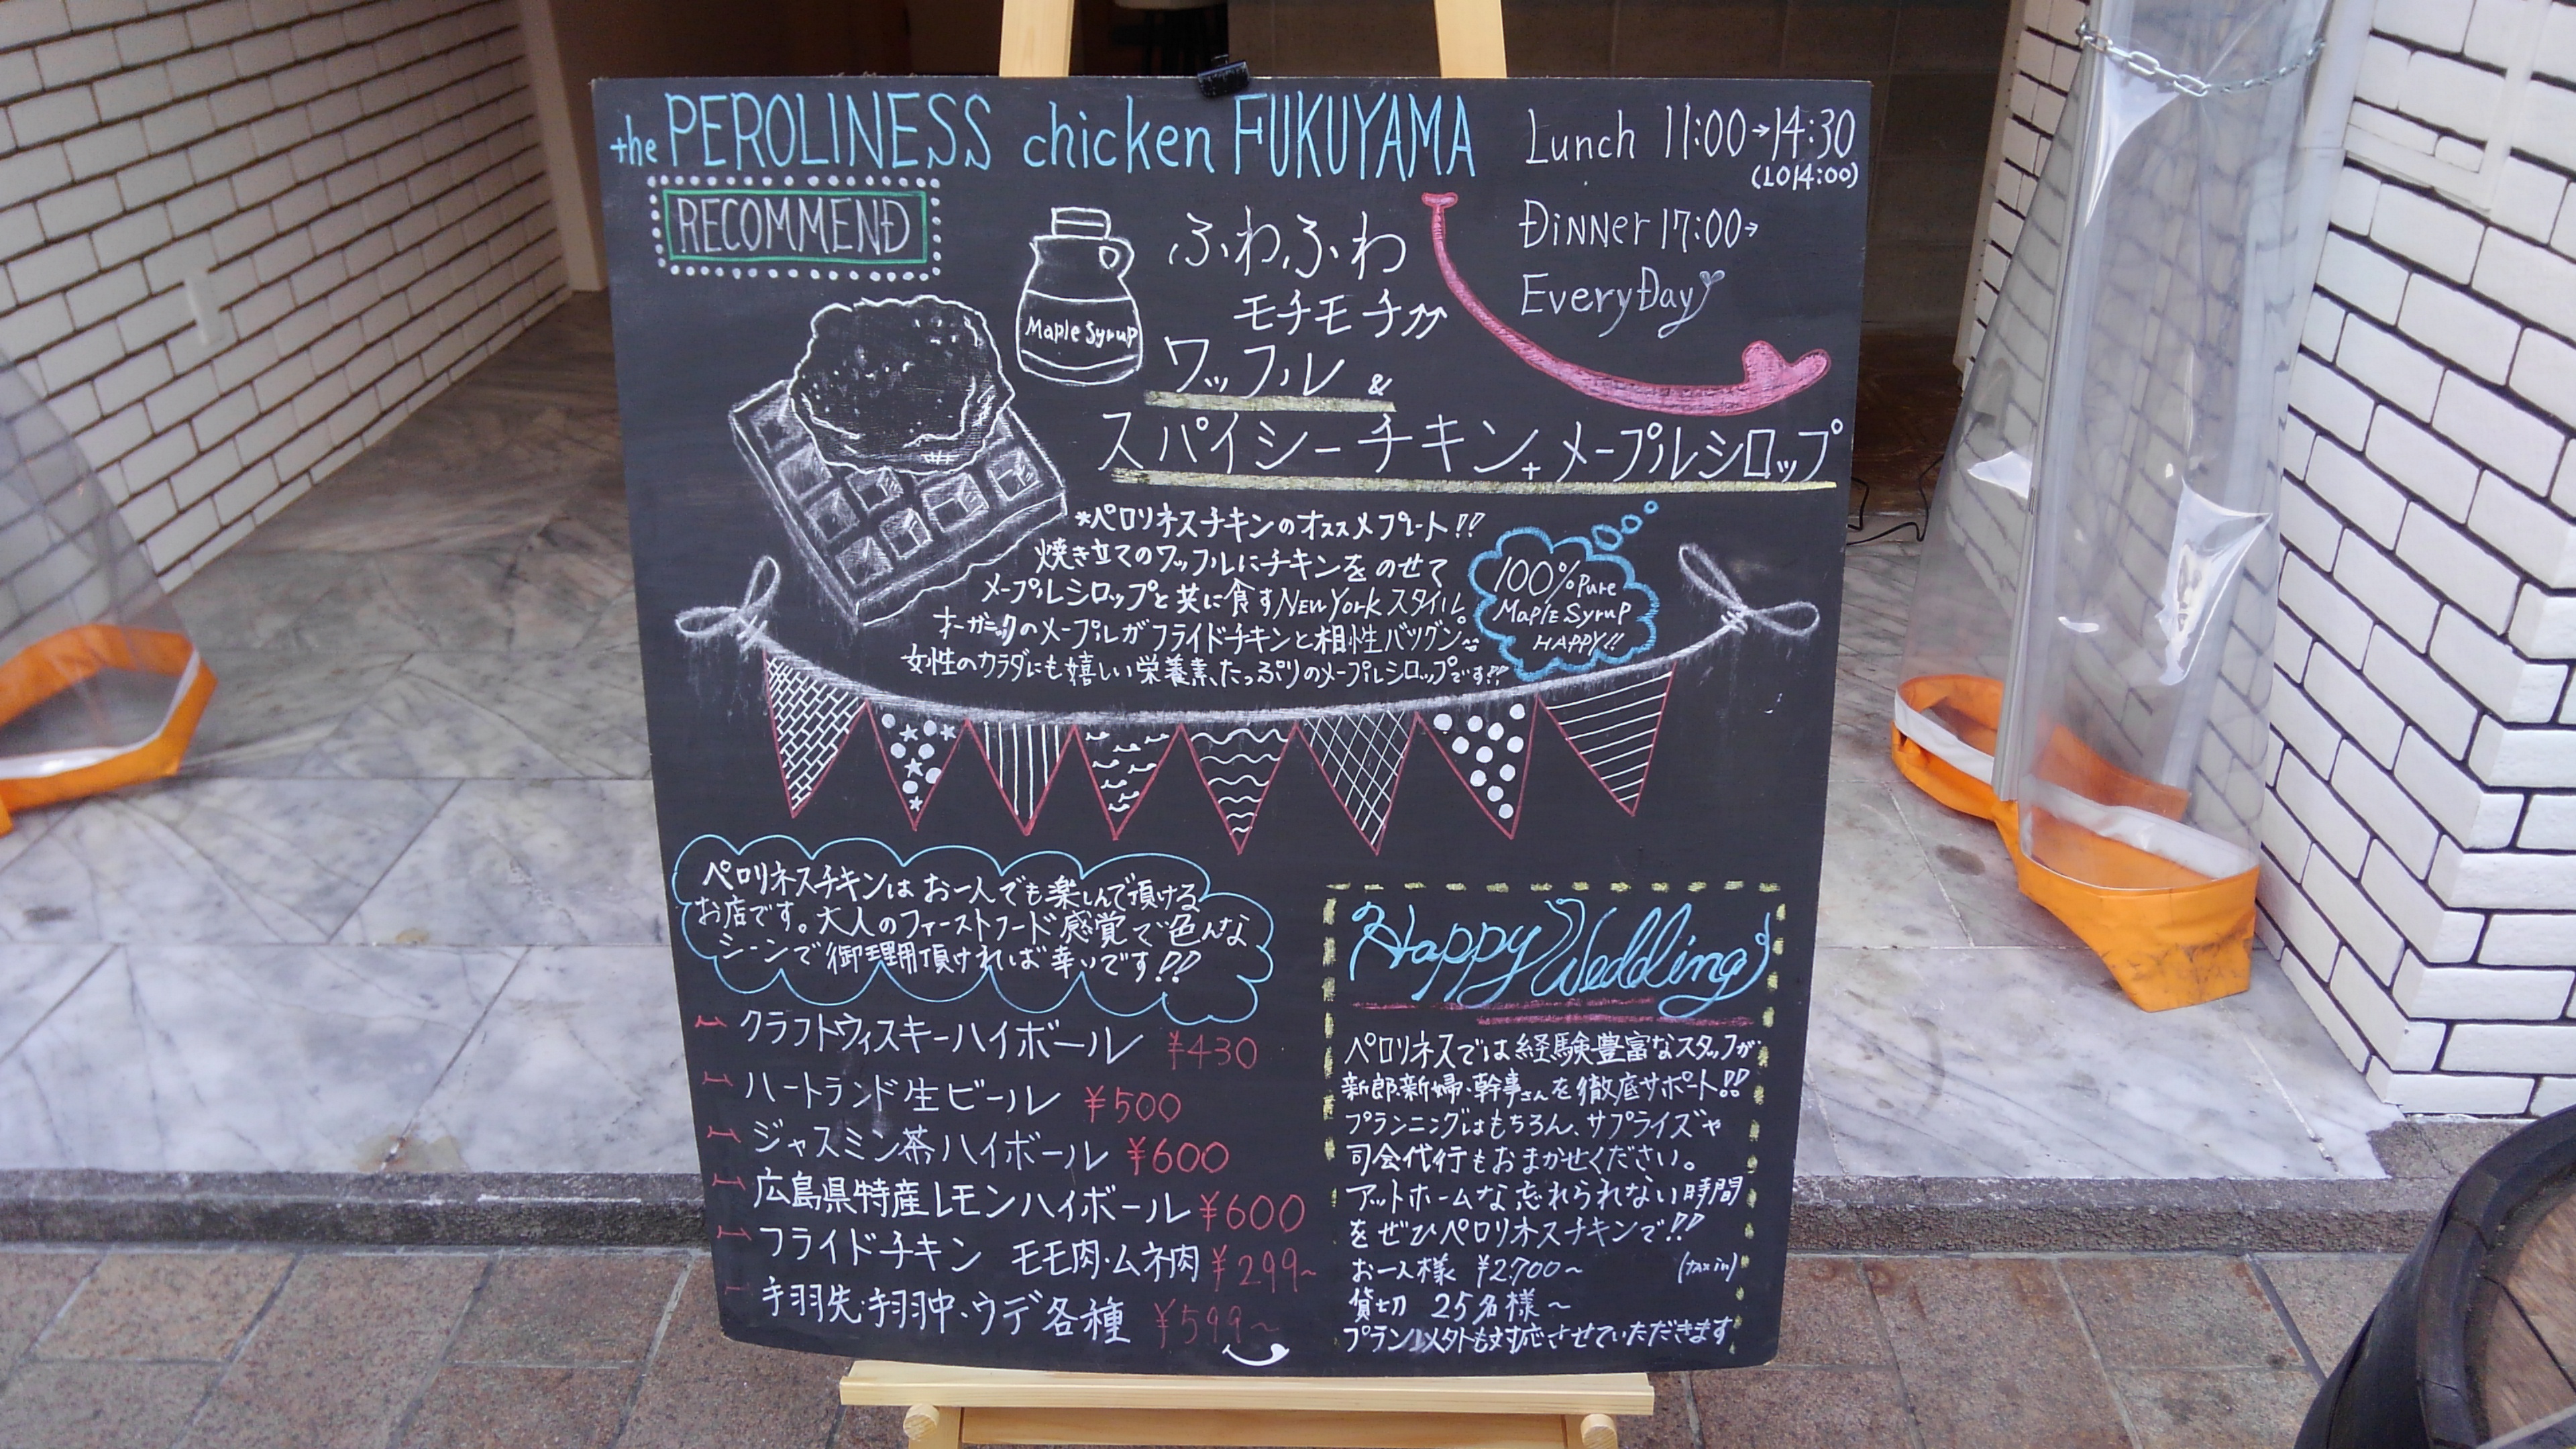 the PEROLINESS chicken FUKUYAMA
Lunch 11:00→14:30
(LO14:00)
DINNER 17:00→
EveryDay
RECOMMEND
Maple Syrup
ふわふわ
モチモチ
ワッフル &
スパイシーチキン+メープルシロップ
*ペロリネスチキンのオススメプレート!!
焼き立てのワッフルにチキンをのせて
メープルシロップと共に食すNEW YORKスタイル。
オーガニックのメープルがフライドチキンと相性バツグン
女性のカラダにも嬉しい栄養素、たっぷりのメープルシロップです!!
100% Pure
MAPLE Syrup
HAPPY!!
ペロリネスチキンはお一人でも楽しんで頂ける
お店です。大人のファーストフード感覚で色んな
シーンで御理用頂ければ幸いです!!
クラフトウィスキーハイボール ¥430
ハートランド生ビール ¥500
ジャスミン茶ハイボール ¥600
広島県特産レモンハイボール ¥600
フライドチキン モモ肉・ムネ肉 ¥299~
手羽先・手羽中・ウデ各種 ¥599~
Happy Wedding
ペロリネスでは経験豊富なスタッフが
新郎・新婦・幹事さんを徹底サポート!!
プランニングはもちろん、サプライズや
司会代行もおまかせください。
アットホームな忘れられない時間
をぜひペロリネスチキンで!!
お一人様 ¥2.700~ (tax in)
貸切 25名様~
プラン以外も対応させていただきます